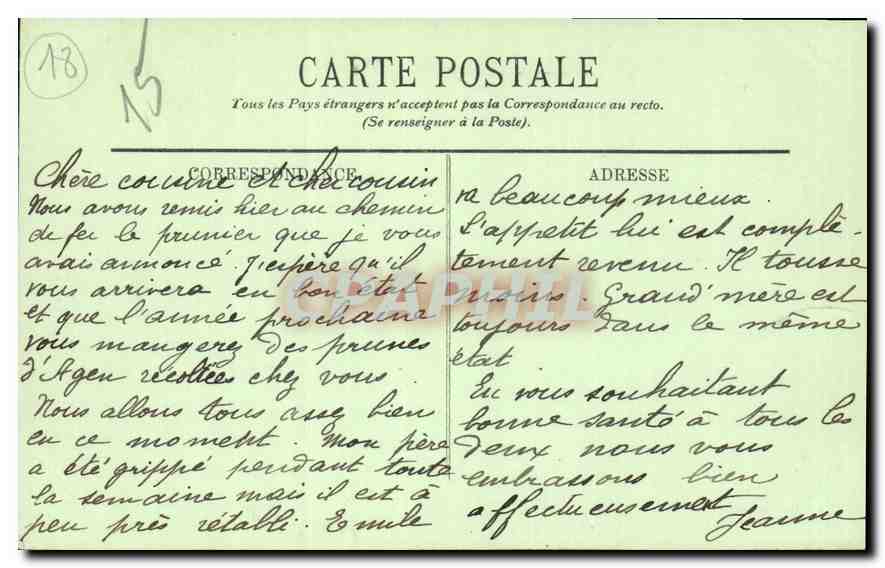 18
15
CARTE POSTALE
Tous les Pays étrangers n'acceptent pas la Correspondance au recto.
(Se renseigner à la Poste).
CORRESPONDANCE
Chère cousine et cher cousin
Nous avons remis hier au chemin
de fer le prunier que je vous
avais annoncé. J'espère qu'il
vous arrivera en bon état
et que l'année prochaine
vous mangerez des prunes
d'Agen récoltées chez vous.
Nous allons tous assez bien
en ce moment. Mon père
a été grippé pendant toute
la semaine mais il est à
peu près rétabli. Emile
ADRESSE
va beaucoup mieux.
L'appetit lui est complè-
tement revenu. Il tousse
moins. Grand'mère est
toujours dans le même
état
En vous souhaitant
bonne santé à tous les
deux nous vous
embrassons bien
affectueusement
Jeanne
CPAPHIL